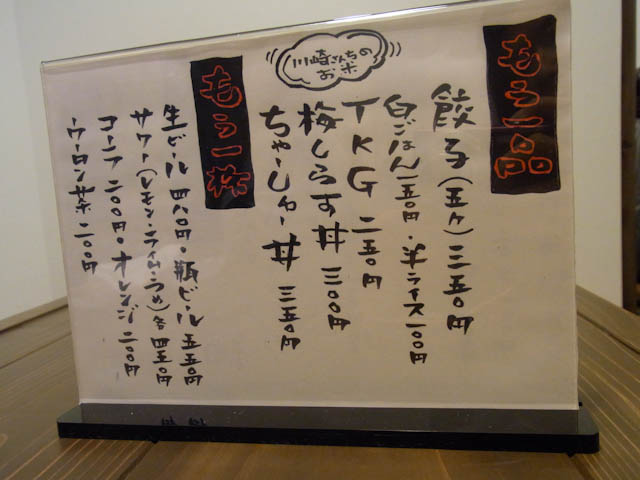 もう一品
餃子(五ヶ)三五〇円
白ごはん一五〇円・半ライス一〇〇円
TKG 二五〇円
梅しらす丼 三〇〇円
ちゃーしゅー丼 三五〇円
川崎さんちのお米
もう一杯
生ビール 四八〇円・瓶ビール 五五〇円
サワー(レモン・ライム・うめ)各 四五〇円
コーラ 二〇〇円・オレンジ 二〇〇円
ウーロン茶 二〇〇円